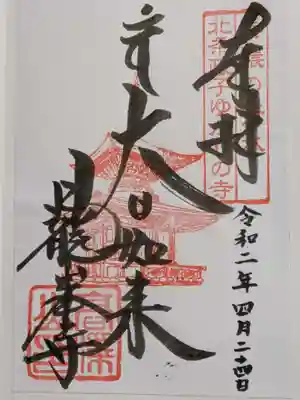 奉拝
北条政子ゆかりの寺
大日如来
日龍峯寺
令和二年四月二十四日